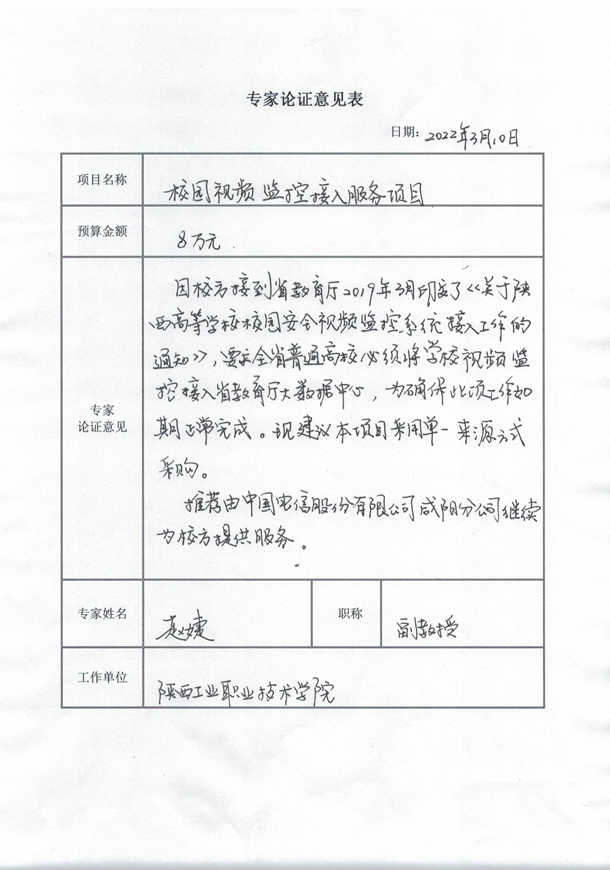 专家论证意见表
日期：2022年3月10日
项目名称 校园视频监控接入服务项目
预算金额 8万元.
因校方接到省教育厅2019年3月印发了《关于陕
西高等学校校园安全视频监控系统接入工作的
通知》，要求全省普通高校必须将学校视频监
控接入省教育厅大数据中心，为确保此项工作如
专家
论证意见
期正常完成。现建议本项目采用单一来源方式
采购。
推荐由中国电信股份有限公司咸阳分公司继续
为校方提供服务。
专家姓名 赵婕 职称 副教授
工作单位 陕西工业职业技术学院